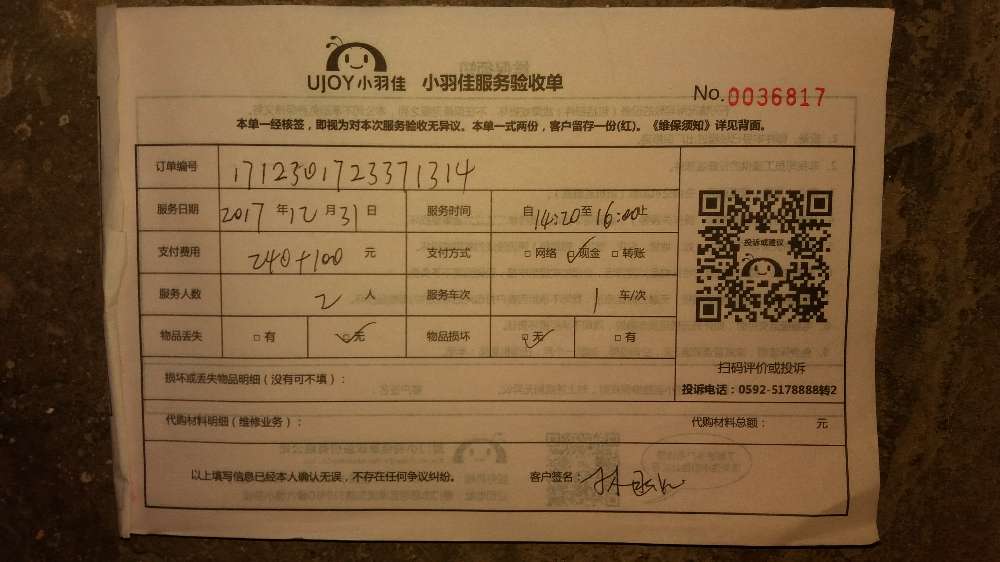 UJOY小羽佳 小羽佳服务验收单
No.0036817
本单一经核签，即视为对本次服务验收无异议。本单一式两份，客户留存一份(红)。《维保须知》详见背面。
订单编号 1712301723371314
服务日期 2017年12月31日 服务时间 自14:20至16:00止
支付费用 240+100 元 支付方式 □网络 □现金 □转账
服务人数 2 人 服务车次 1 车/次
物品丢失 □有 □无 物品损坏 □无 □有
投诉或建议
扫码评价或投诉
投诉电话：0592-5178888转2
损坏或丢失物品明细（没有可不填）：
代购材料明细（维修业务）： 代购材料总额： 元
以上填写信息已经本人确认无误，不存在任何争议纠纷。 客户签名：